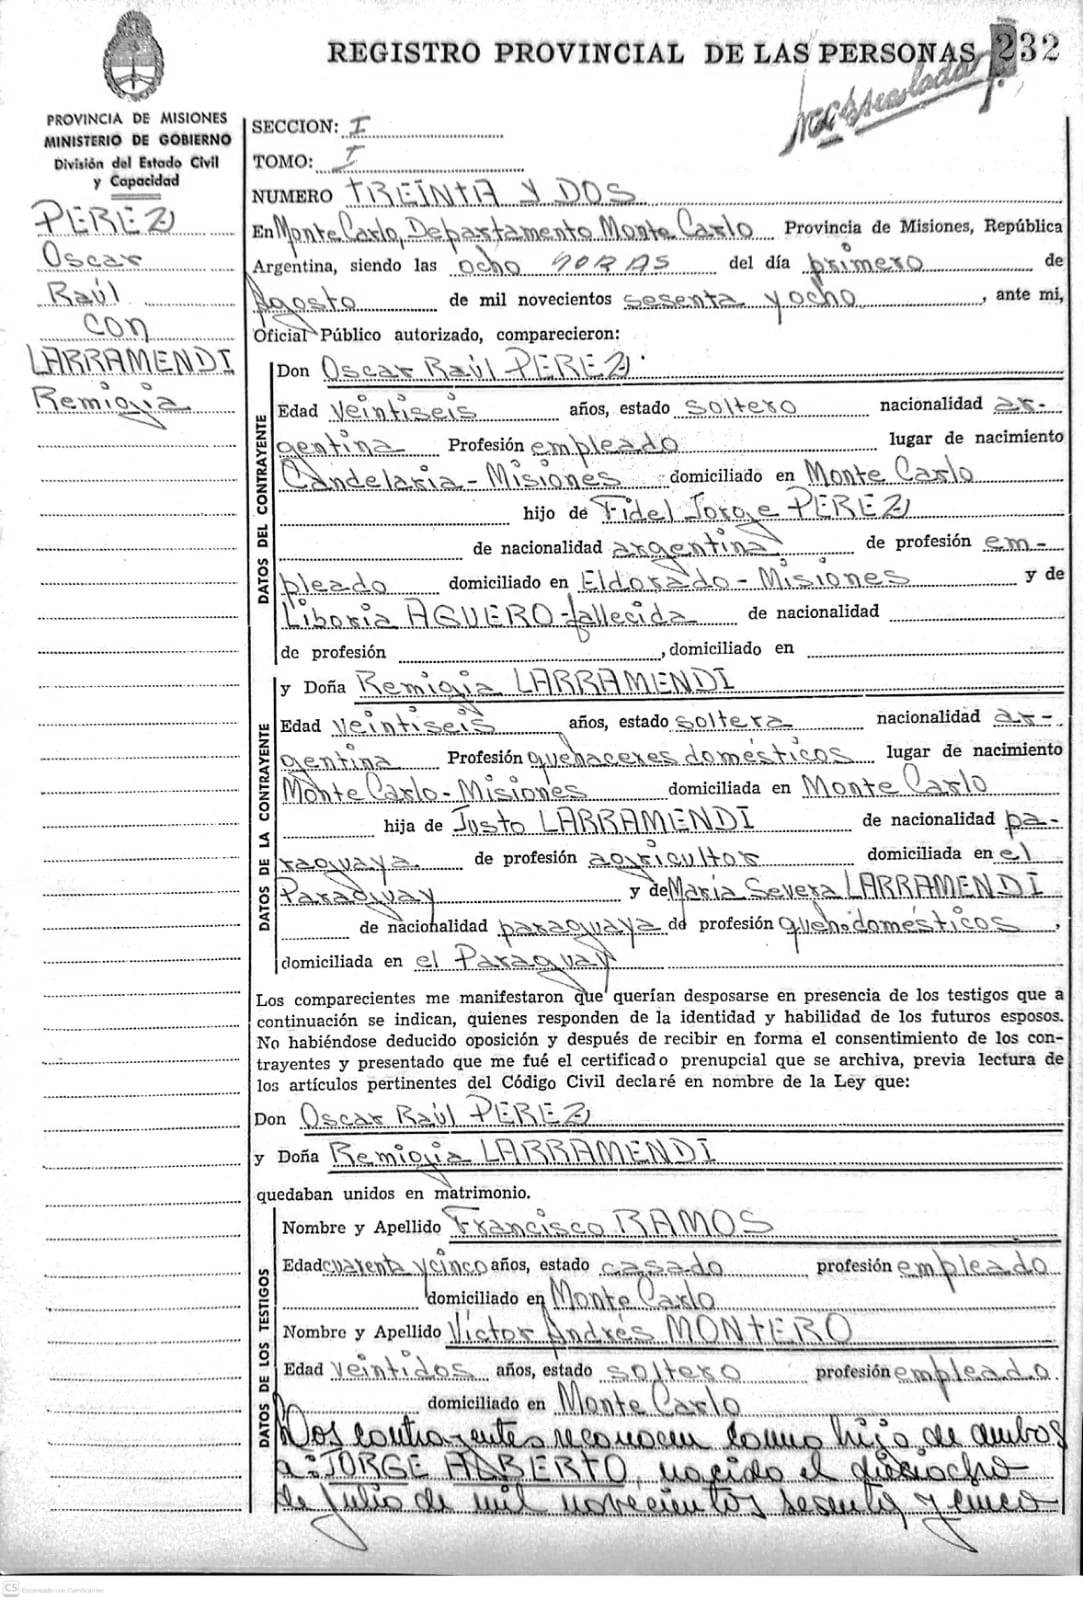 REGISTRO PROVINCIAL DE LAS PERSONAS 232
PROVINCIA DE MISIONES
MINISTERIO DE GOBIERNO
División del Estado Civil
y Capacidad
PEREZ
Oscar
Raúl
con
LARRAMENDI
Remigia
SECCION: I
TOMO: I
NUMERO TREINTA Y DOS
En Monte Carlo, Departamento Monte Carlo Provincia de Misiones, República
Argentina, siendo las ocho HORAS del día primero de
Agosto de mil novecientos sesenta y ocho, ante mi,
Oficial Público autorizado, comparecieron:
DATOS DEL CONTRAYENTE
Don Oscar Raúl PEREZ
Edad veintiseis años, estado soltero nacionalidad ar-
gentina Profesión empleado lugar de nacimiento
Candelaria - Misiones domiciliado en Monte Carlo
hijo de Fidel Jorge PEREZ
de nacionalidad argentina de profesión em-
pleado domiciliado en Eldorado - Misiones y de
Liboria AGUERO - fallecida de nacionalidad
de profesión , domiciliado en
DATOS DE LA CONTRAYENTE
y Doña Remigia LARRAMENDI
Edad veintiseis años, estado soltera nacionalidad ar-
gentina Profesión quehaceres domésticos lugar de nacimiento
Monte Carlo - Misiones domiciliada en Monte Carlo
hija de Justo LARRAMENDI de nacionalidad pa-
raguaya. de profesión agricultor domiciliada en el
Paraguay y de María Severa LARRAMENDI
de nacionalidad paraguaya de profesión queh. domésticos,
domiciliada en el Paraguay
Los comparecientes me manifestaron que querían desposarse en presencia de los testigos que a
continuación se indican, quienes responden de la identidad y habilidad de los futuros esposos.
No habiéndose deducido oposición y después de recibir en forma el consentimiento de los con-
trayentes y presentado que me fué el certificado prenupcial que se archiva, previa lectura de
los artículos pertinentes del Código Civil declaré en nombre de la Ley que:
Don Oscar Raúl PEREZ
y Doña Remigia LARRAMENDI
quedaban unidos en matrimonio.
DATOS DE LOS TESTIGOS
Nombre y Apellido Francisco RAMOS
Edad cuarenta y cinco años, estado casado profesión empleado
domiciliado en Monte Carlo
Nombre y Apellido Víctor Andrés MONTERO
Edad veintidos años, estado soltero profesión empleado.
domiciliado en Monte Carlo
Los contrayentes reconocen como hijo de ambos
a: JORGE ALBERTO, nacido el dieciocho
de julio de mil novecientos sesenta y cinco
CS Escaneado con CamScanner